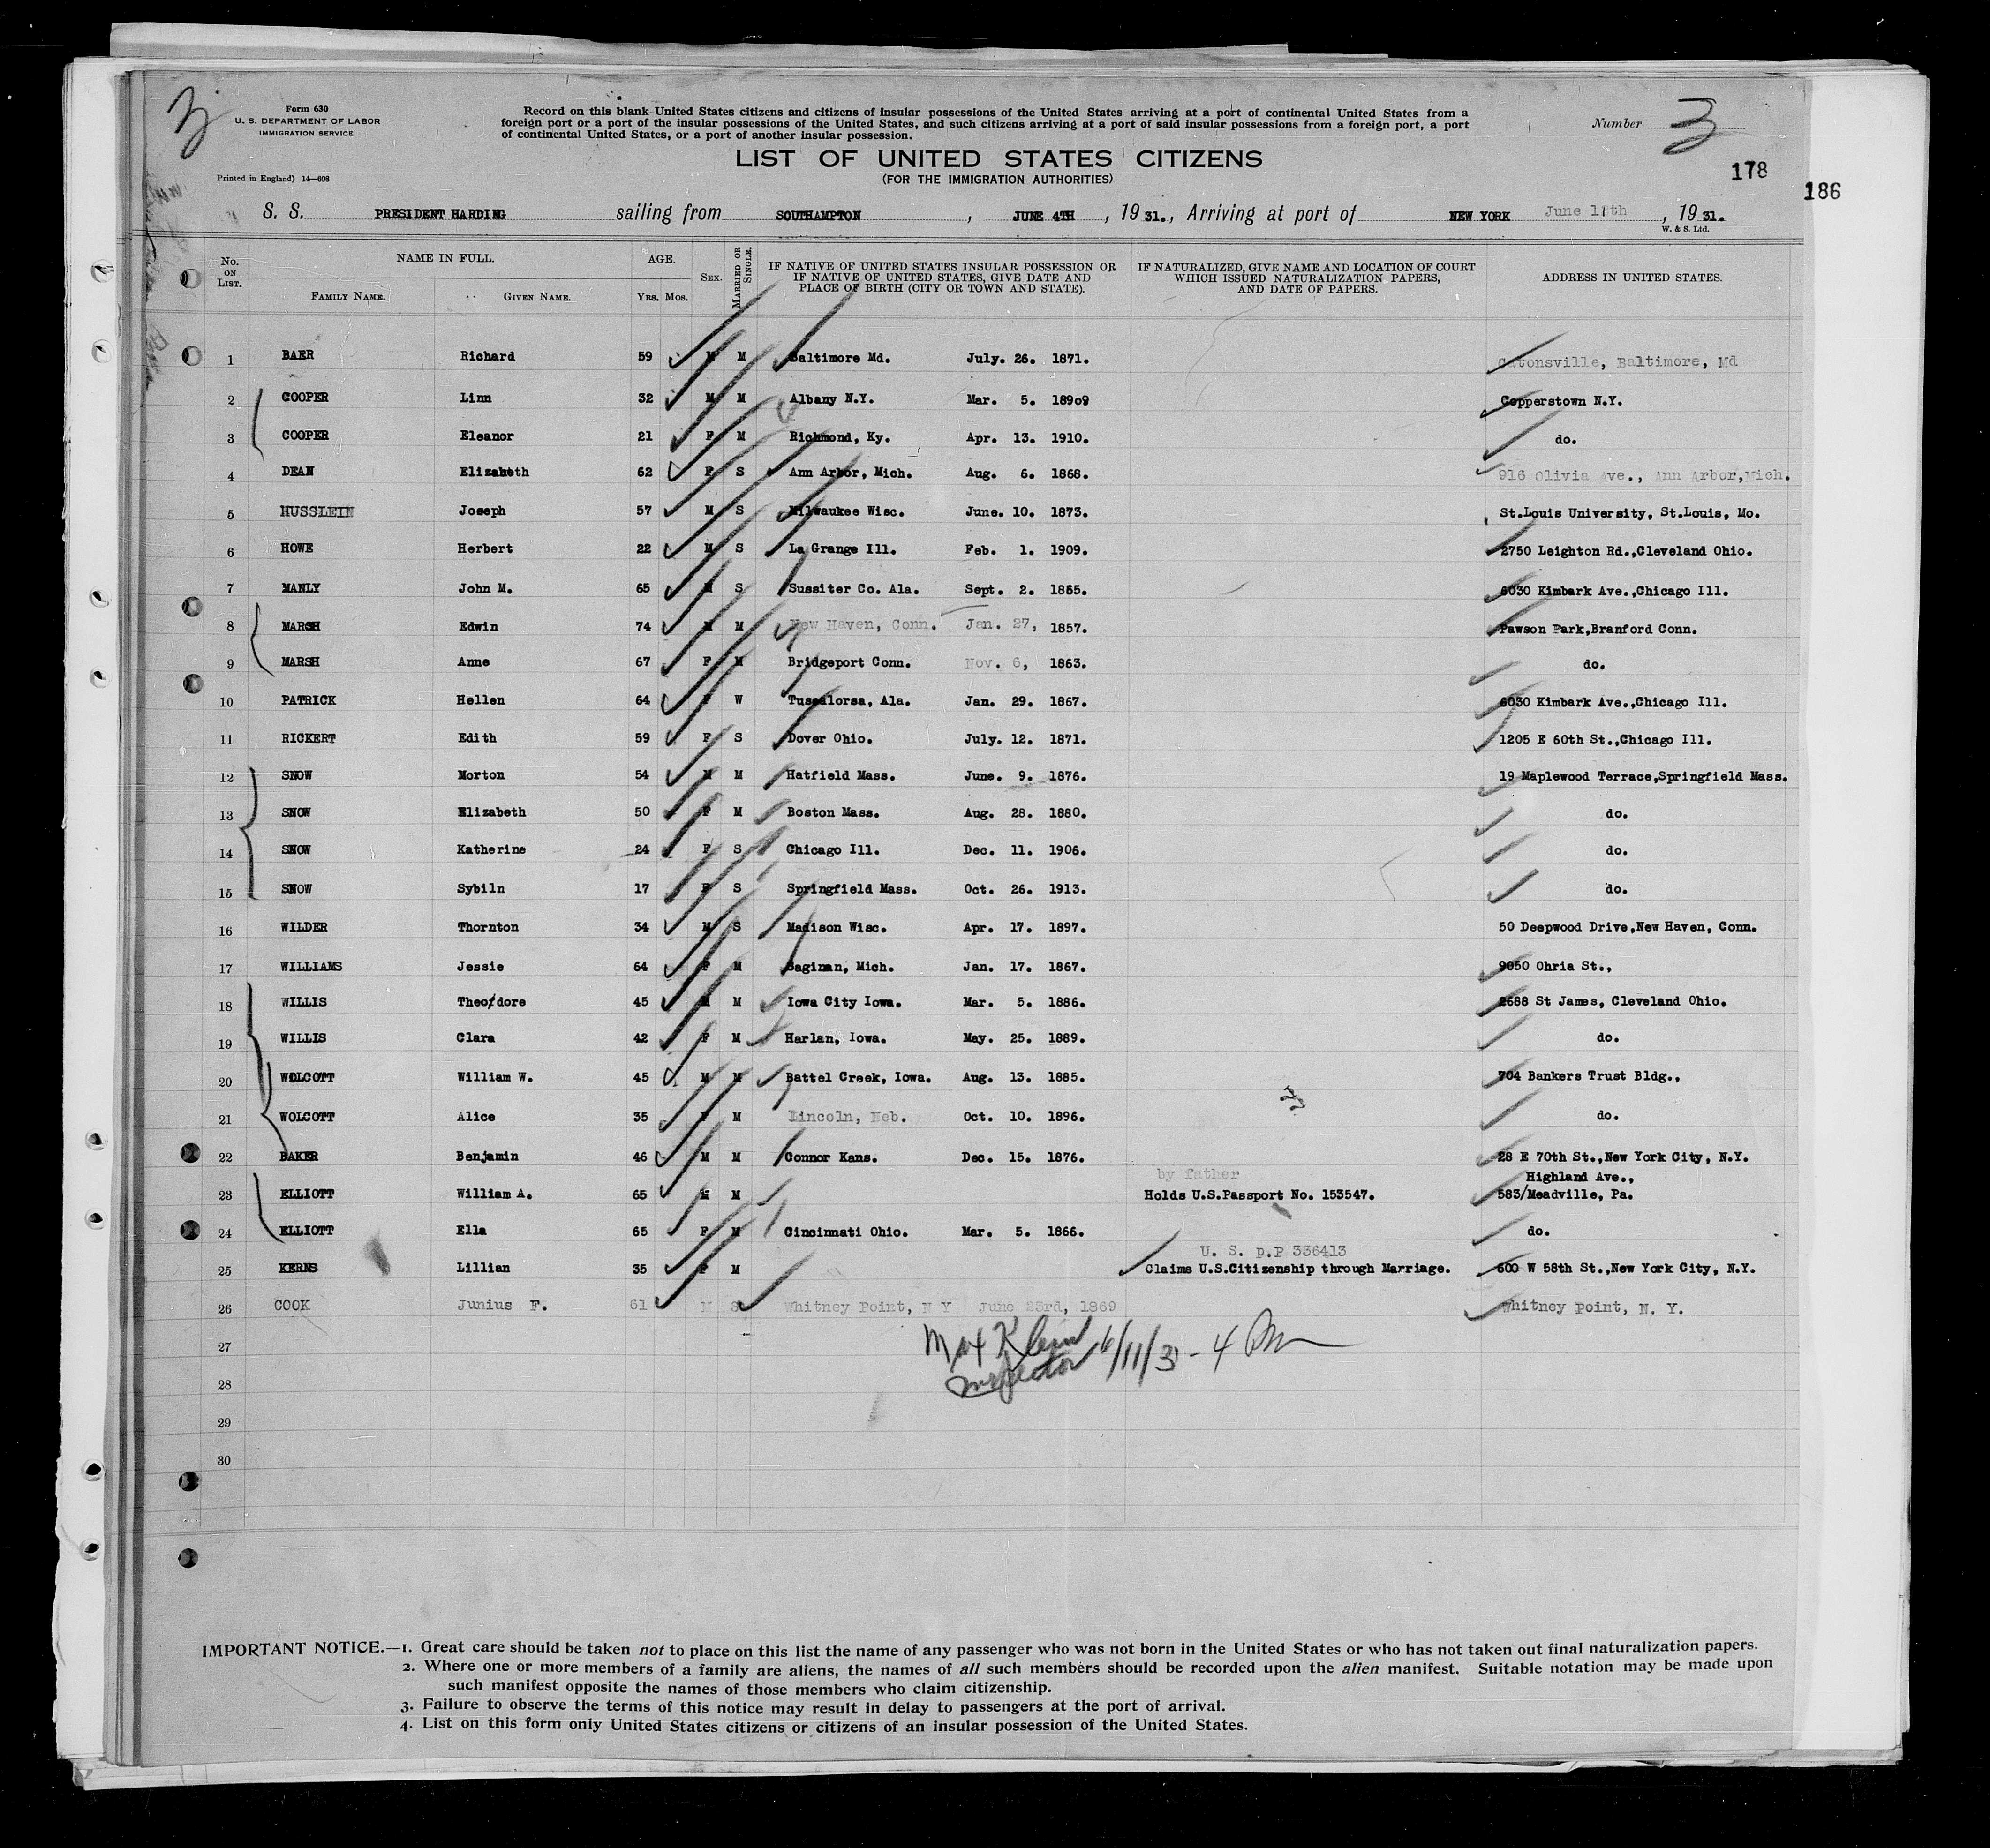 3
Form 630
U. S. DEPARTMENT OF LABOR
IMMIGRATION SERVICE
Printed in England) 14—608
Record on this blank United States citizens and citizens of insular possessions of the United States arriving at a port of continental United States from a
foreign port or a port of the insular possessions of the United States, and such citizens arriving at a port of said insular possessions from a foreign port, a port
of continental United States, or a port of another insular possession.
Number 3
LIST OF UNITED STATES CITIZENS
(FOR THE IMMIGRATION AUTHORITIES)
178
186
S. S. PRESIDENT HARDING sailing from SOUTHAMPTON , JUNE 4TH , 19 31., Arriving at port of NEW YORK June 11th , 19 31.
W. & S. Ltd.
No. ON LIST. NAME IN FULL. AGE. SEX. MARRIED OR SINGLE. IF NATIVE OF UNITED STATES INSULAR POSSESSION OR IF NATIVE OF UNITED STATES, GIVE DATE AND PLACE OF BIRTH (CITY OR TOWN AND STATE). IF NATURALIZED, GIVE NAME AND LOCATION OF COURT WHICH ISSUED NATURALIZATION PAPERS, AND DATE OF PAPERS. ADDRESS IN UNITED STATES.
FAMILY NAME. GIVEN NAME. YRS. MOS.
1 BAER Richard 59 M M Baltimore Md. July. 26. 1871. Catonsville, Baltimore, Md
2 COOPER Linn 32 M M Albany N.Y. Mar. 5. 18909 Copperstown N.Y.
3 COOPER Eleanor 21 F M Richmond, Ky. Apr. 13. 1910. do.
4 DEAN Elizabeth 62 F S Ann Arbor, Mich. Aug. 6. 1868. 916 Olivia Ave., Ann Arbor,Mich.
5 HUSSLEIN Joseph 57 M S Milwaukee Wisc. June. 10. 1873. St.Louis University, St.Louis, Mo.
6 HOWE Herbert 22 M S La Grange Ill. Feb. 1. 1909. 2750 Leighton Rd.,Cleveland Ohio.
7 MANLY John M. 65 M S Sussiter Co. Ala. Sept. 2. 1865. 6030 Kimbark Ave.,Chicago Ill.
8 MARSH Edwin 74 M M New Haven, Conn. Jan. 27, 1857. Pawson Park,Branford Conn.
9 MARSH Anne 67 F M Bridgeport Conn. Nov. 6, 1863. do.
10 PATRICK Hellen 64 F W Tuscalorsa, Ala. Jan. 29. 1867. 6030 Kimbark Ave.,Chicago Ill.
11 RICKERT Edith 59 F S Dover Ohio. July. 12. 1871. 1205 E 60th St.,Chicago Ill.
12 SNOW Morton 54 M M Hatfield Mass. June. 9. 1876. 19 Maplewood Terrace,Springfield Mass.
13 SNOW Elizabeth 50 F M Boston Mass. Aug. 28. 1880. do.
14 SNOW Katherine 24 F S Chicago Ill. Dec. 11. 1906. do.
15 SNOW Sybiln 17 F S Springfield Mass. Oct. 26. 1913. do.
16 WILDER Thornton 34 M S Madison Wisc. Apr. 17. 1897. 50 Deepwood Drive,New Haven, Conn.
17 WILLIAMS Jessie 64 F M Saginan, Mich. Jan. 17. 1867. 9050 Ohria St.,
18 WILLIS Theo/dore 45 M M Iowa City Iowa. Mar. 5. 1886. 2688 St James, Cleveland Ohio.
19 WILLIS Clara 42 F M Harlan, Iowa. May. 25. 1889. do.
20 WOLCOTT William W. 45 M M Battel Creek, Iowa. Aug. 13. 1885. 704 Bankers Trust Bldg.,
21 WOLCOTT Alice 35 F M Lincoln, Neb. Oct. 10. 1896. do.
22 BAKER Benjamin 46 M M Connor Kans. Dec. 15. 1876. 28 E 70th St.,New York City, N.Y.
by father Highland Ave.,
23 ELLIOTT William A. 65 M M Holds U.S.Passport No. 153547. 583/Meadville, Pa.
24 ELLIOTT Ella 65 F M Cincinnati Ohio. Mar. 5. 1866. do.
U. S. p.P 336413
25 KERNS Lillian 35 F M Claims U.S.Citizenship through Marriage. 600 W 58th St.,New York City, N.Y.
26 COOK Junius F. 61 M S Whitney Point, N Y June 23rd, 1869 Whitney point, N. Y.
27 Max Klein 6/11/31 - 4 Pm
Inspector
28
29
30
IMPORTANT NOTICE.—1. Great care should be taken not to place on this list the name of any passenger who was not born in the United States or who has not taken out final naturalization papers.
2. Where one or more members of a family are aliens, the names of all such members should be recorded upon the alien manifest. Suitable notation may be made upon
such manifest opposite the names of those members who claim citizenship.
3. Failure to observe the terms of this notice may result in delay to passengers at the port of arrival.
4. List on this form only United States citizens or citizens of an insular possession of the United States.